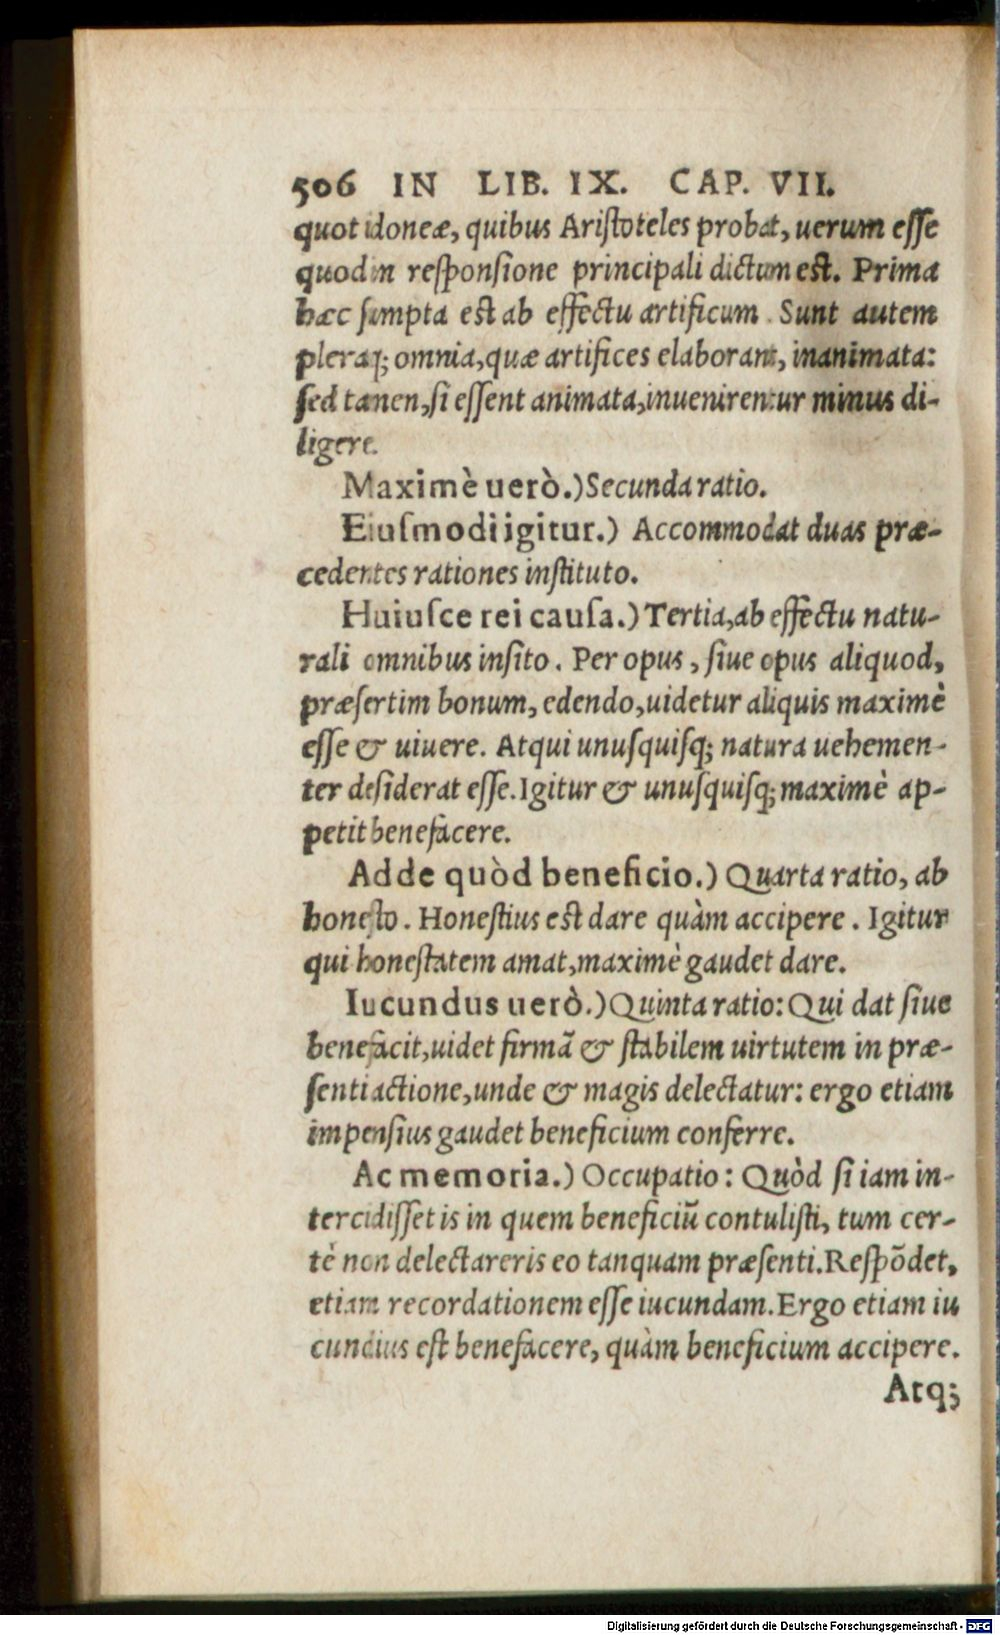 506 IN LIB. IX. CAP. VII.
quot idoneæ, quibus Ariſtoteles probat, uerum eſſe
quod in reſponſione principali dictum est. Prima
hæc ſumpta est ab effectu artificum. Sunt autem
pleraq; omnia, quæ artifices elaborant, inanimata:
ſed tamen, ſi eſſent animata, inuenirentur minus di-
ligere.
Maximè uerò.) Secunda ratio.
Eiuſmodi igitur.) Accommodat duas præ-
cedentes rationes inſtituto.
Huiuſce rei cauſa.) Tertia, ab effectu natu-
rali omnibus inſito. Per opus, ſiue opus aliquod,
præſertim bonum, edendo, uidetur aliquis maximè
eſſe & uiuere. Atqui unuſquiſq; natura uehemen-
ter deſiderat eſſe. Igitur & unuſquiſq; maximè ap-
petit benefacere.
Adde quòd beneficio.) Quarta ratio, ab
honeſto. Honeſtius est dare quàm accipere. Igitur
qui honeſtatem amat, maximè gaudet dare.
Iucundus uerò.) Quinta ratio: Qui dat ſiue
benefacit, uidet firmã & ſtabilem uirtutem in præ-
ſenti actione, unde & magis delectatur: ergo etiam
impenſius gaudet beneficium conferre.
Ac memoria.) Occupatio: Quòd ſi iam in-
tercidiſſet is in quem beneficiũ contuliſti, tum cer-
tè non delectareris eo tanquam præſenti. Reſpõdet,
etiam recordationem eſſe iucundam. Ergo etiam iu
cundius eſt benefacere, quàm beneficium accipere.
Atq;
Digitalisierung gefördert durch die Deutsche Forschungsgemeinschaft - DFG